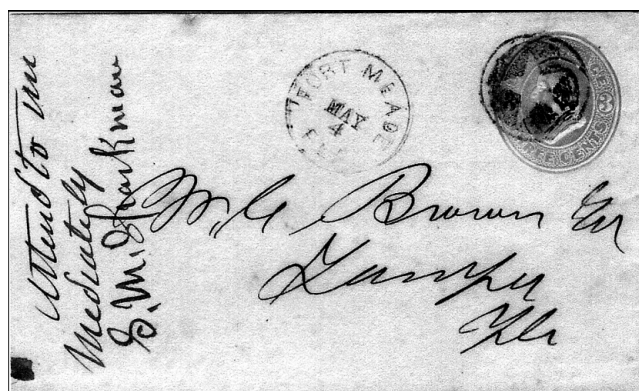 Attend to im
mediately
S. M. Sparkman
FORT MEADE
MAY
4
FLA
THREE CENTS
W. C. Brown Esq
Tampa
Fla